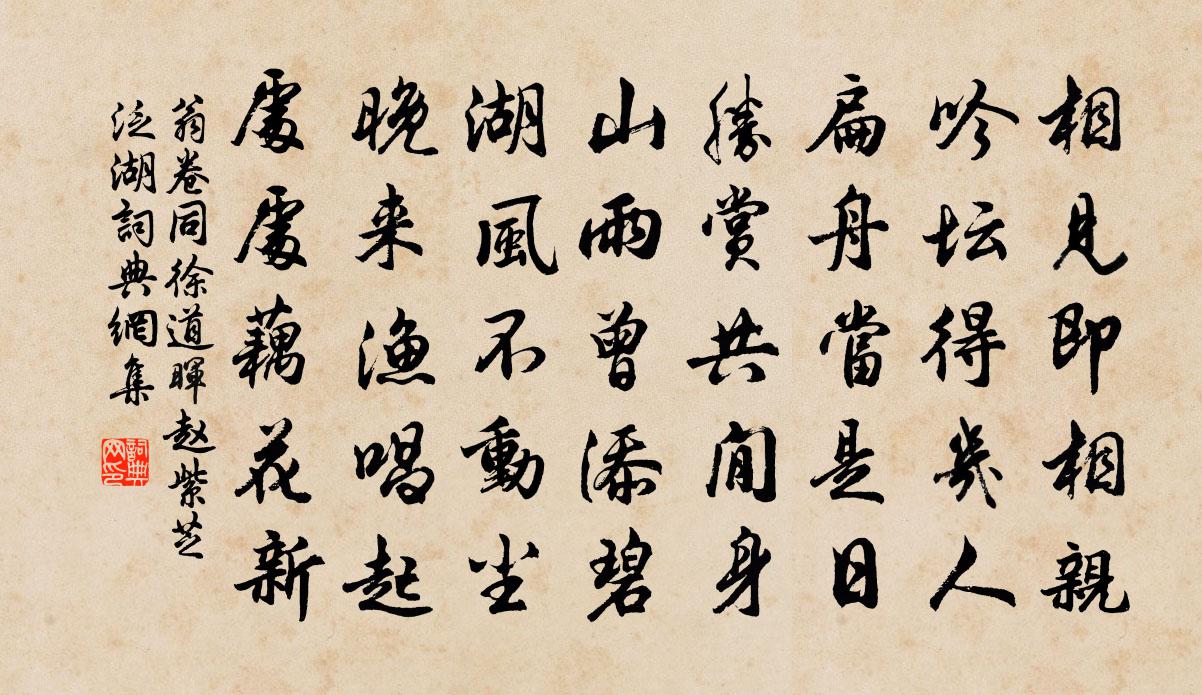 相見即相親
吟坛得幾人
扁舟當是日
勝賞共閒身
山雨曾添碧
湖風不動尘
晚来漁唱起
處處藕花新
翁卷同徐道暉赵紫芝
泛湖詞典網集
詞典网印